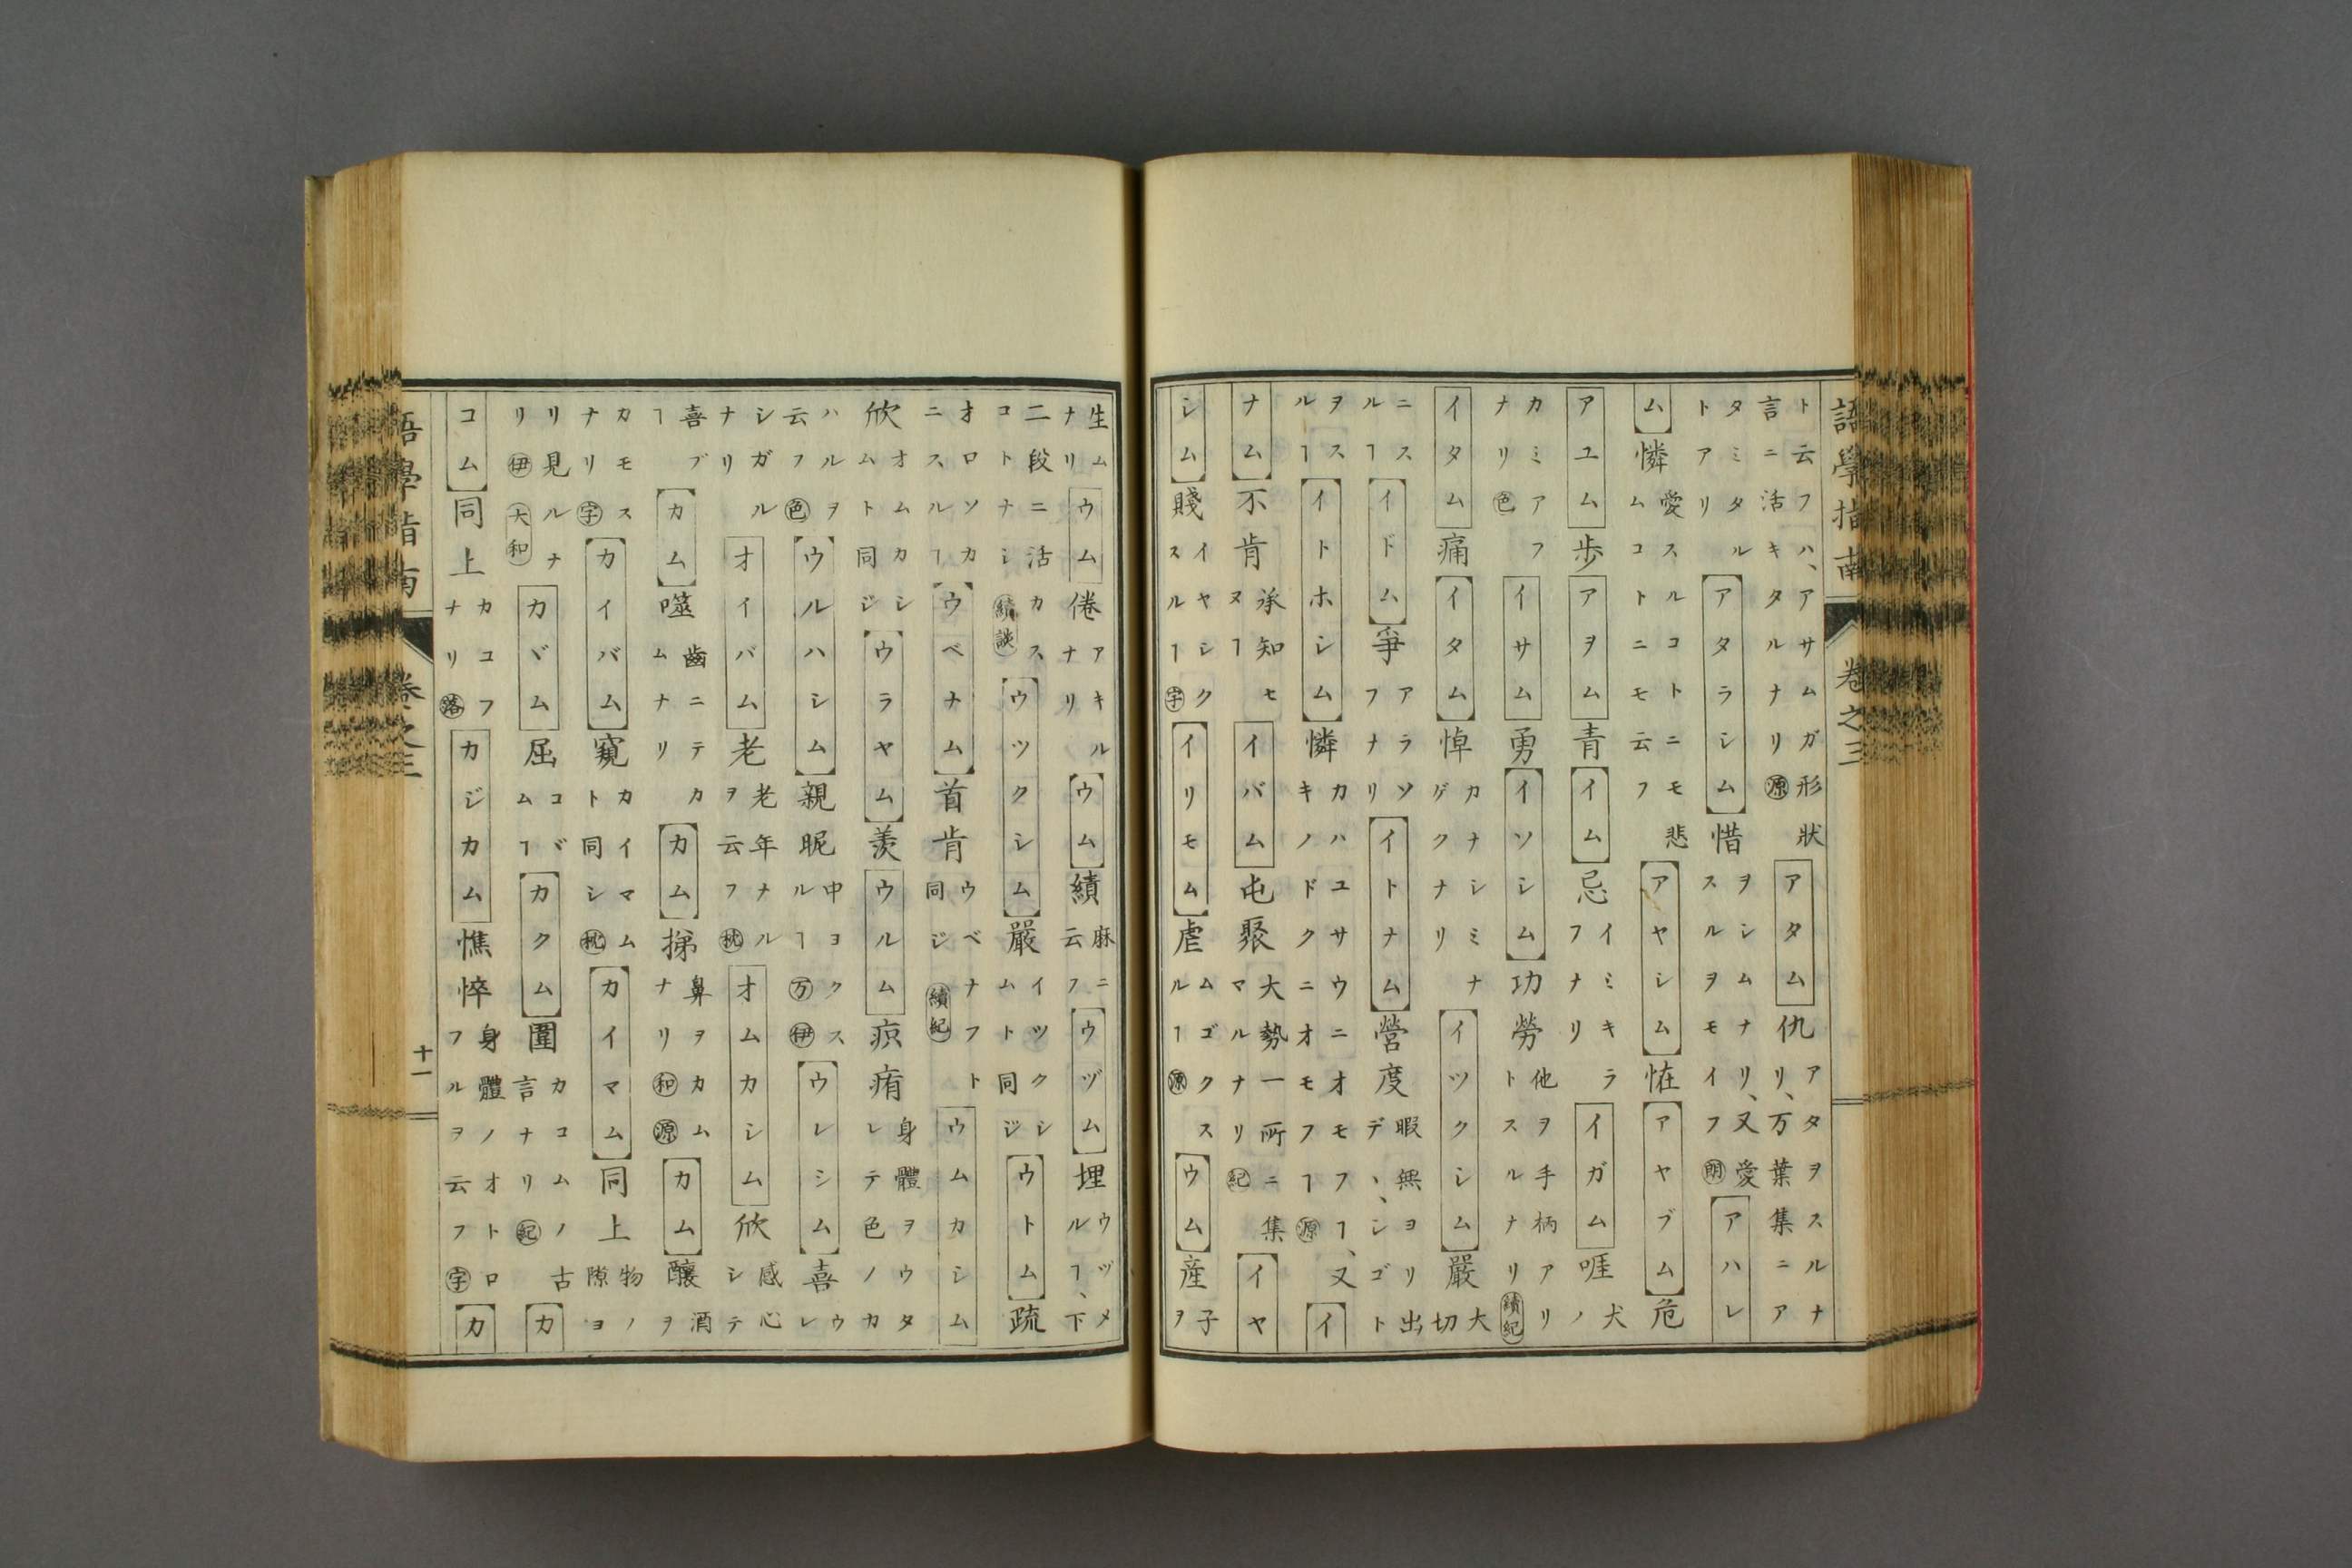 語學指南 卷之三
ト云フハ、アサムガ形狀言ニ活キタルナリ源アタム仇アタヲスルナリ、万葉集ニア
タミタルトアリアタラシム惜ヲシムナリ、又愛スルヲモイフ朗アハレ
ム憐愛スルコトニモ悲ムコトニモ云フアヤシム恠アヤブム危
アユム歩アヲム青イム忌イミキラフナリイガム啀犬ノ
カミアフナリ色イサム勇イソシム功勞他ヲ手柄アリトスルナリ續紀
イタム痛イタム悼カナシミナゲクナリイツクシム嚴大切
ニスルヿイドム爭アラソフナリイトナム營度暇無ヨリ出デヽ、シゴト
ヲスルヿイトホシム憐カハユサウニオモフヿ、又キノドクニオモフヿ源イ
ナム不肯承知セヌヿイバム屯聚大勢一所ニ集マルナリ紀イヤ
シム賤イヤシクスルヿ字イリモム虐ムゴクスルヿ源ウム産子ヲ
生ムナリウム倦アキルナリウム績麻ニ云フウヅム埋ウヅメルヿ、下
二段ニ活カスコトナシ續談ウツクシム嚴イツクシムト同ジウトム疏
オロソカニスルヿウベナム首肯ウベナフト同ジ續紀ウムカシム
欣オムカシムト同ジウラヤム羨ウルム痏身體ヲウタレテ色ノカ
ハルヲ云フ色ウルハシム親昵中ヨクスルヿ万伊ウレシム喜ウレ
シガルナリオイバム老老年ナルヲ云フ枕オムカシム欣感心シテ
喜ブヿカム噬齒ニテカムナリカム鼻ヲカムナリ和源カム釀酒ヲ
カモスナリ字カイバム窺カイマムト同シ枕カイマム同上物ノ隙ヨ
リ見ルナリ伊大和カヾム屈コヾムヿカクム圍カコムノ古言ナリ紀カ
コム同上カコフナリ落カジカム憔悴身體ノオトロフルヲ云フ字カ
語學指南 卷之三 十一